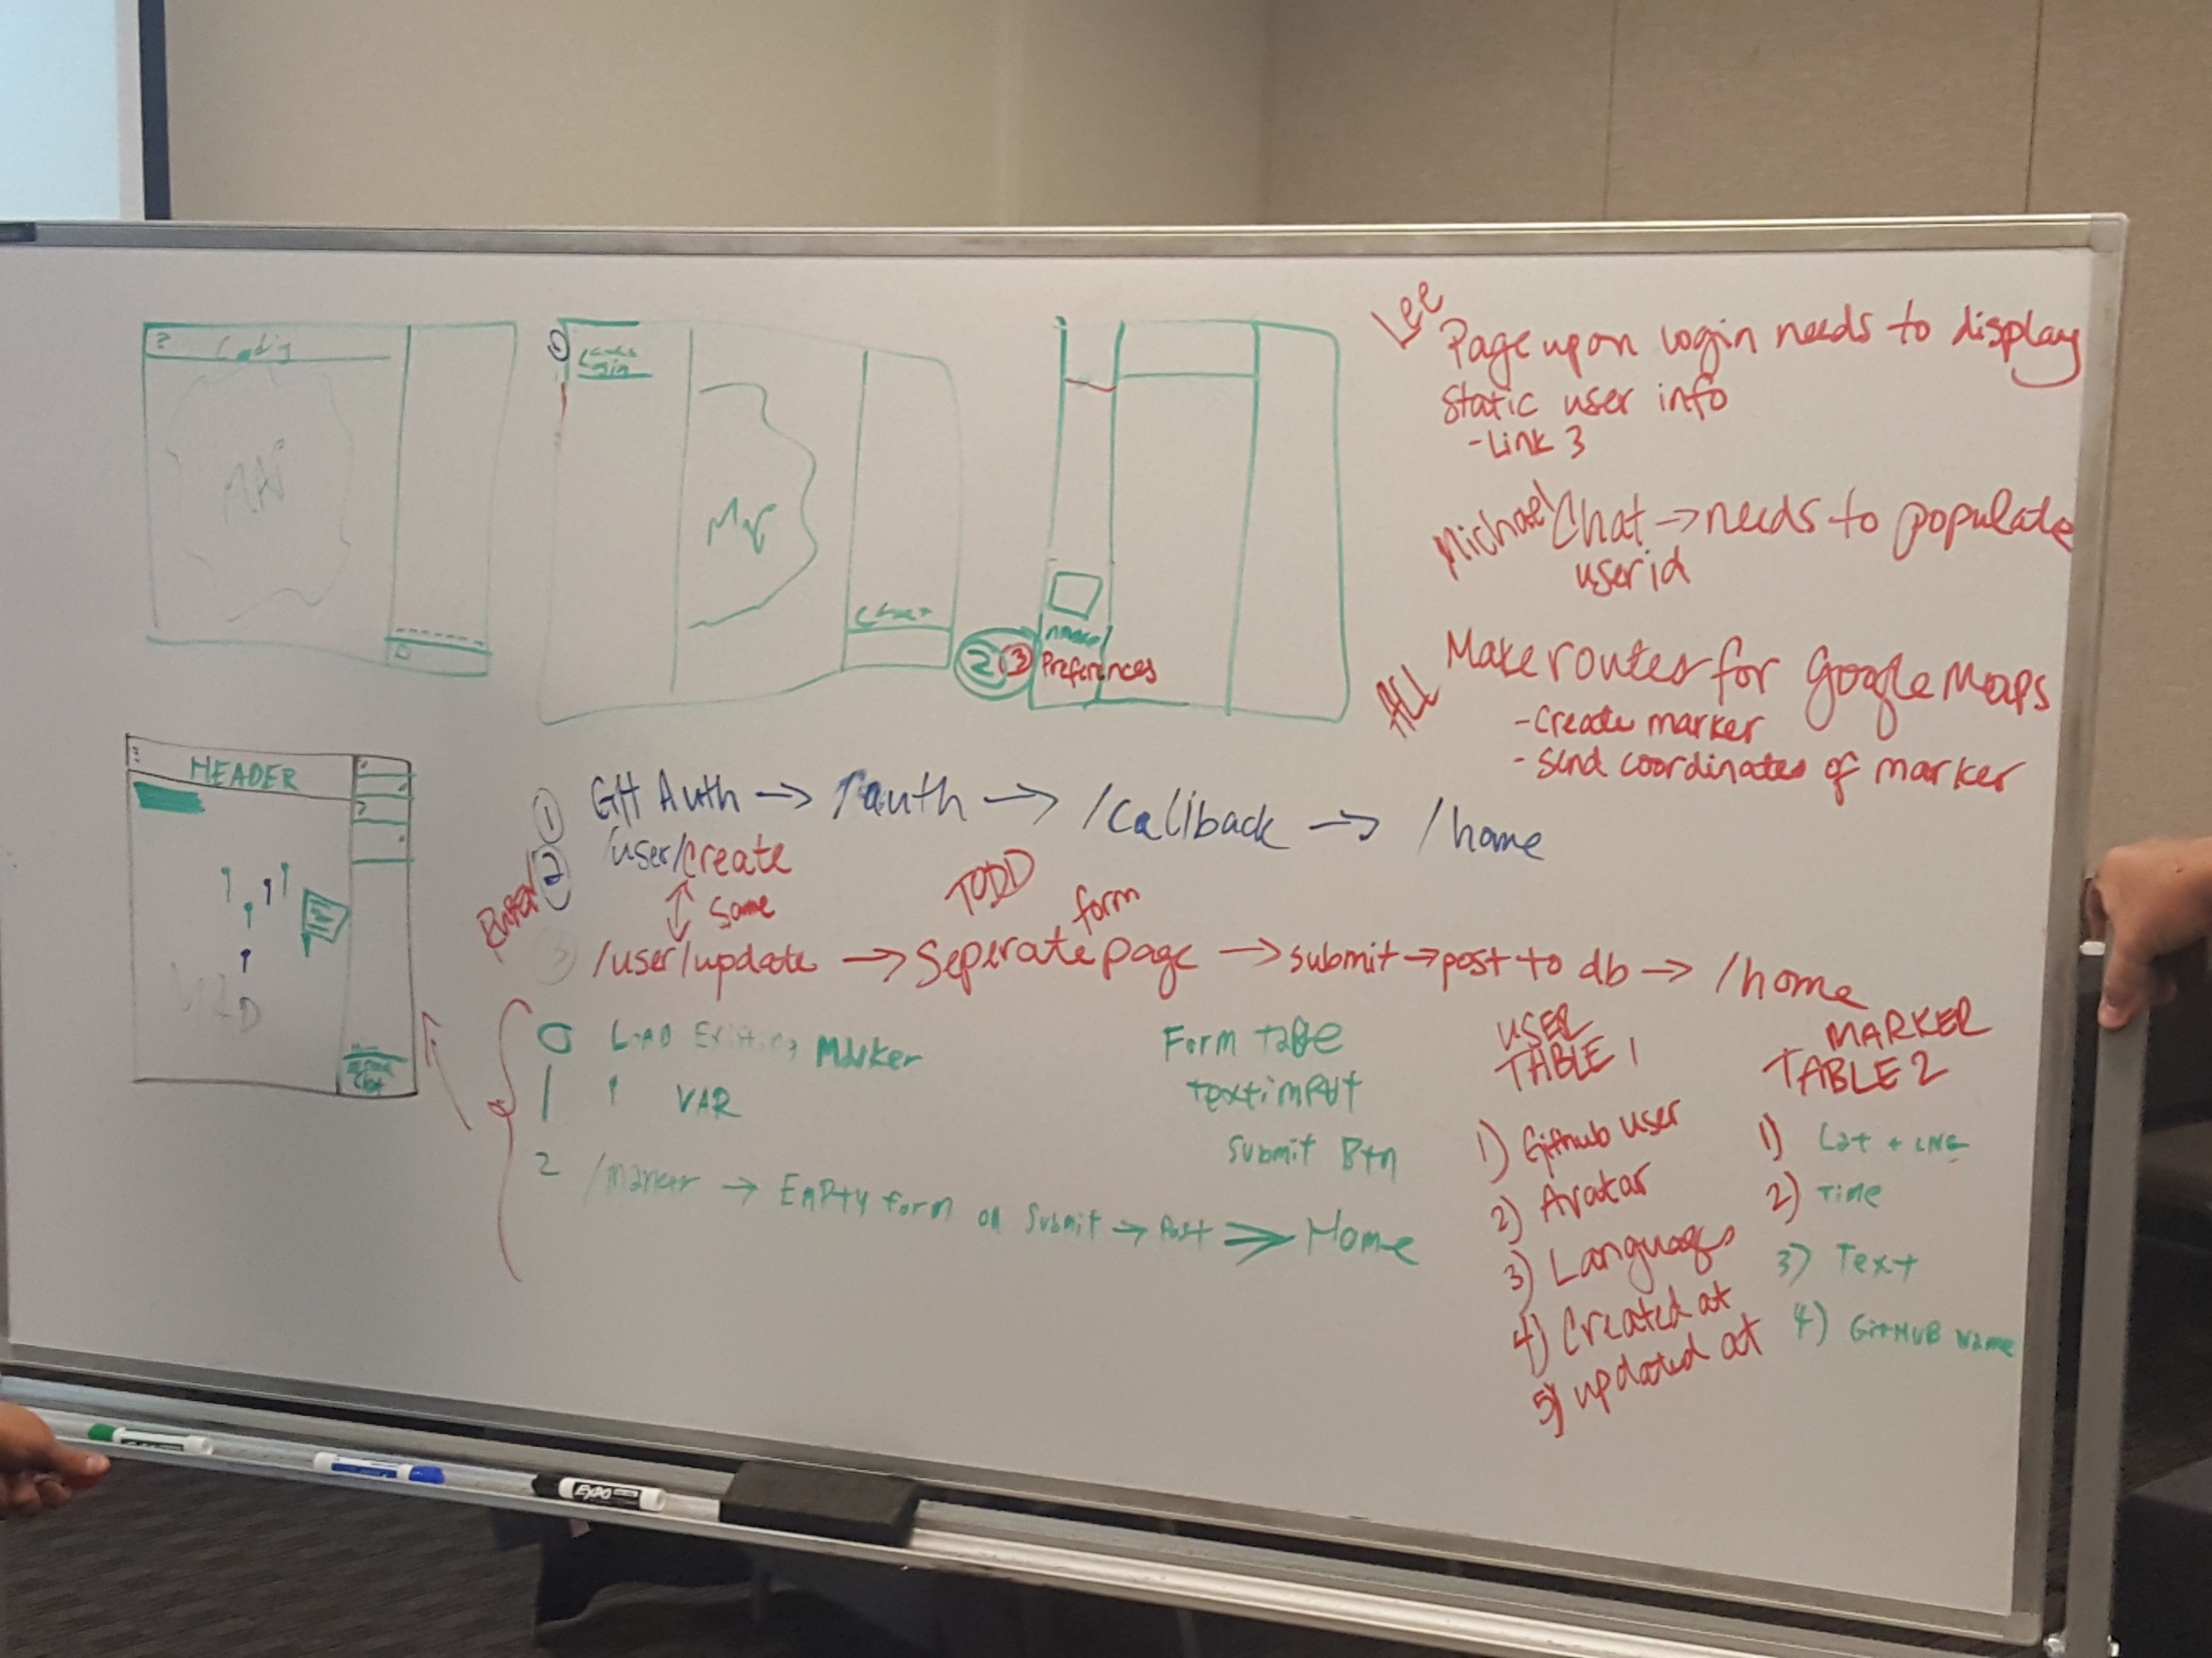 ?
MAP
Login
Map
Chat
2
3
Preferences
Lee
Page upon login needs to display
static user info
- Link 3
Michael
Chat → needs to populate
user id
ALL
Make routes for Google Maps
- Create marker
- Send coordinates of marker
HEADER
MAP
Chat
1 GH Auth → /auth → /callback → /home
2 /user/create
↕ Same
TODD
form
3 /user/update → Seperate page → submit → post to db → /home
0 LOAD Existing Marker
1 VAR
2 /marker → Empty form on Submit → Post ⇒ Home
Form table
text input
Submit Btn
USER
TABLE 1
1) Github user
2) Avatar
3) Languages
4) Created at
5) updated at
MARKER
TABLE 2
1) Lat + LNG
2) Time
3) Text
4) GitHUB Name
EXPO